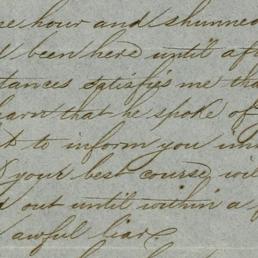 hour and shunned
been here until
satisfys me tha
earn that he spoke of
to inform you
your best course wil
out until within a
awful liar.